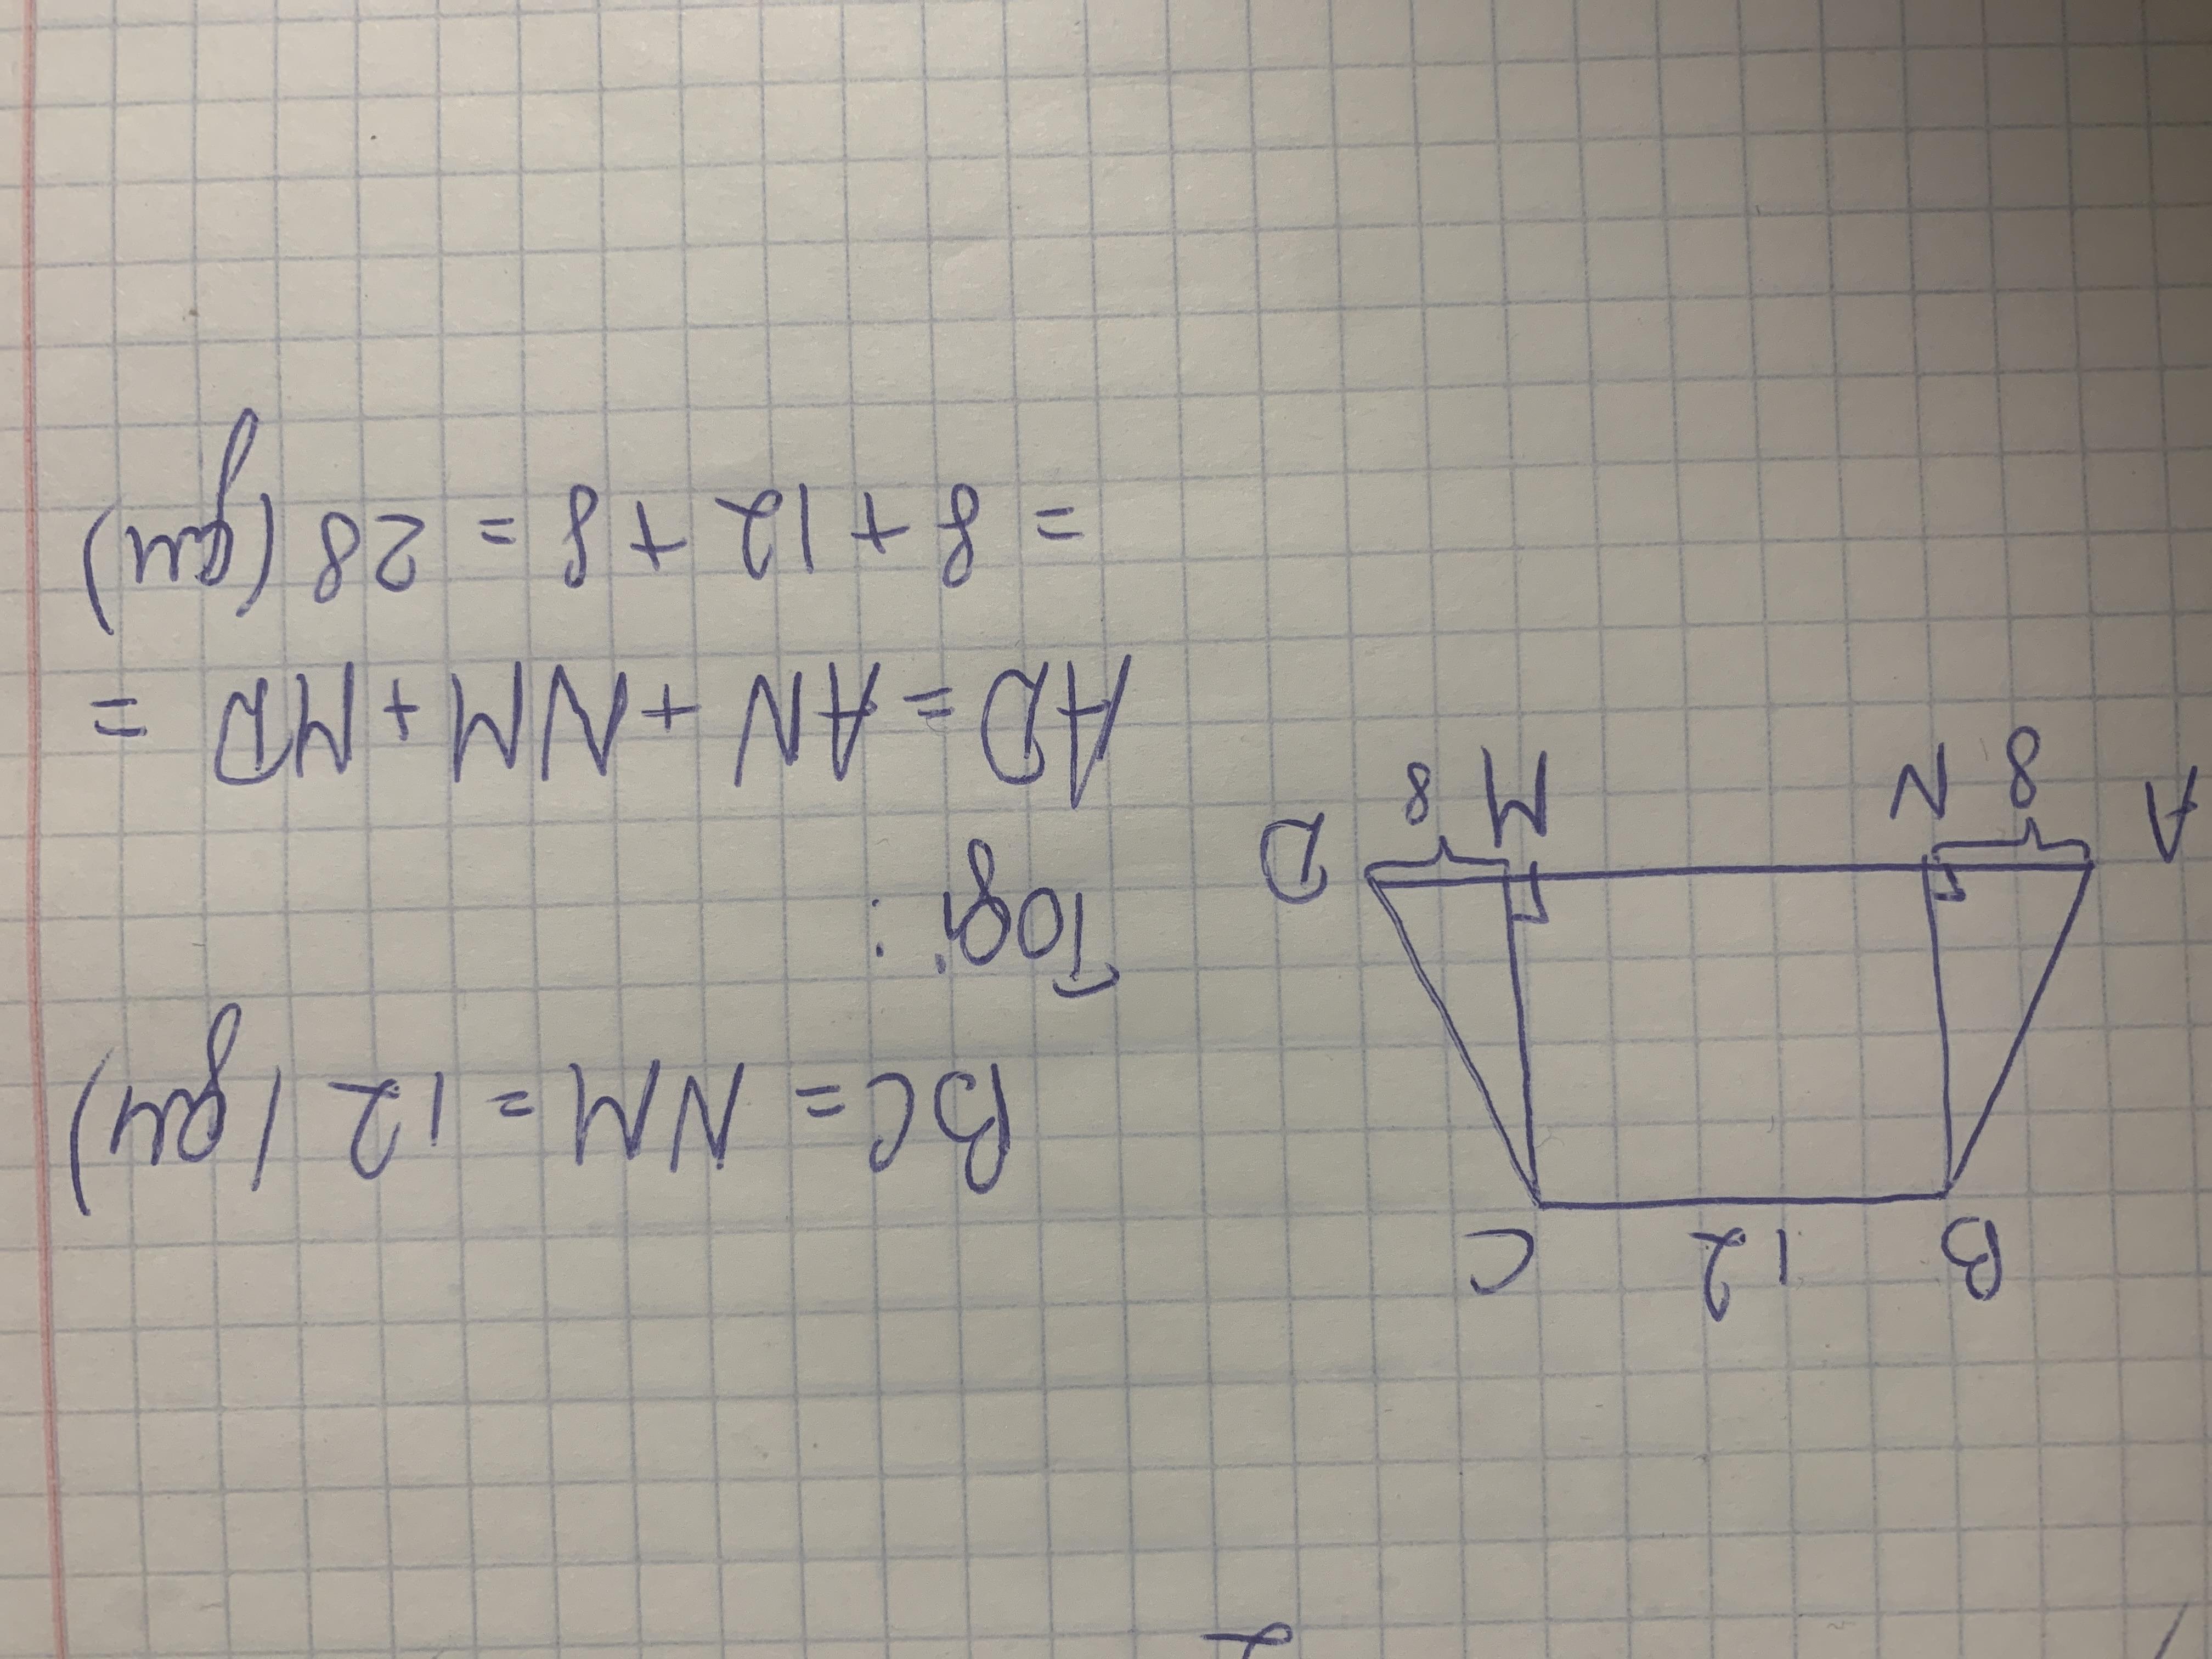 B 12 C
BC = NM = 12 (дм)
Тоді :
A 8 N M 8 D
AD = AN + NM + MD =
= 8 + 12 + 8 = 28 (дм)